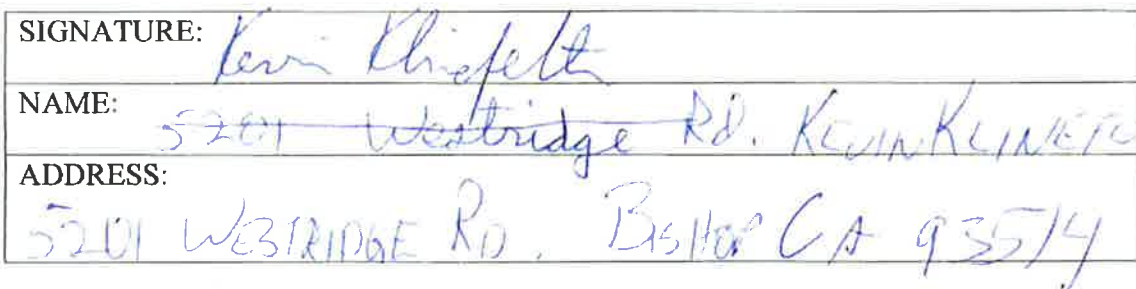 SIGNATURE: Kevin
NAME: 5201 Westridge Rd. KEVIN
ADDRESS:
5201 WESTRIDGE RD. BISHOP CA 93514